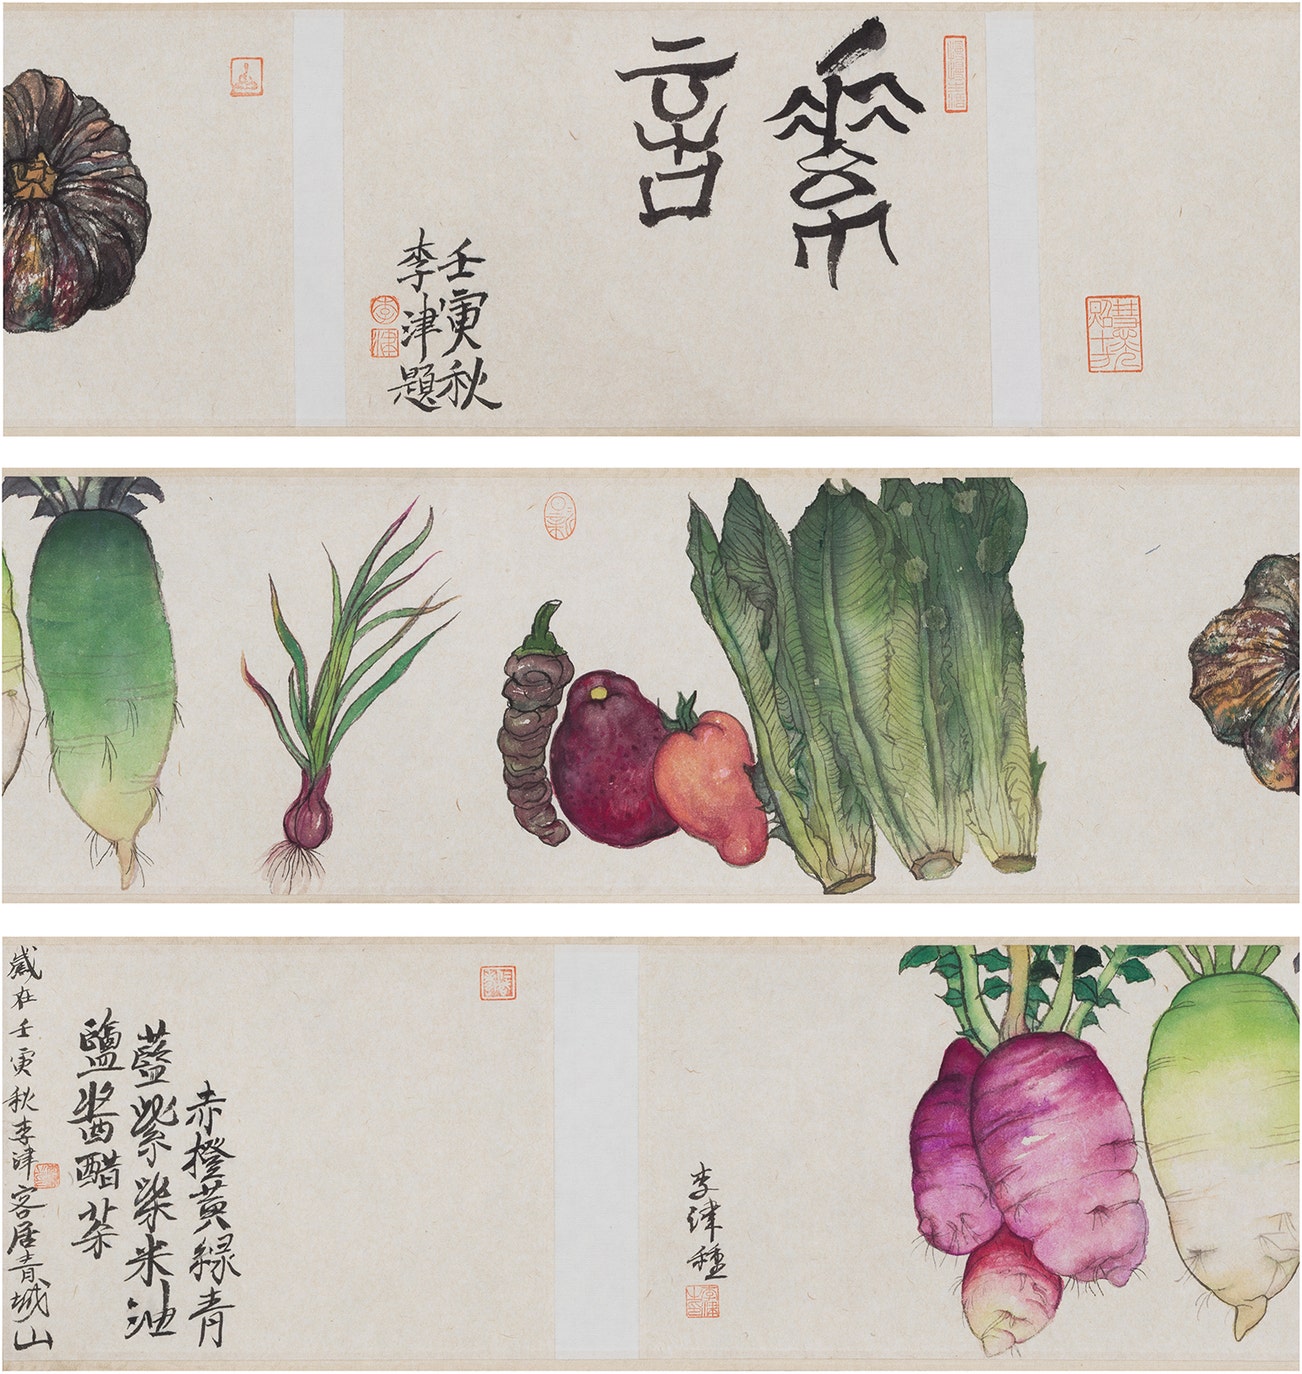 慧光照十方
壬寅秋
李津題
李
津
李津種
赤橙黃緑青
藍紫柴米油
鹽醬醋茶
歲在壬寅秋李津客居青城山